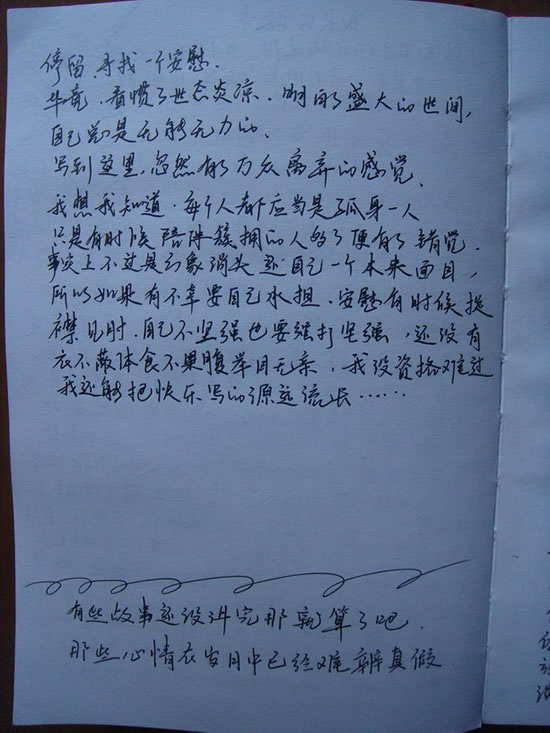 停留,寻找一个安慰.
毕竟,看惯了世态炎凉.明白了盛大的世间,
自己总是无能无力的.
写到这里,忽然有了万众离弃的感觉.
我想我知道,每个人都应当是孤身一人
只是有时候陪伴簇拥的人多了便有了错觉.
事实上不过是幻象消失还自己一个本来面目,
所以如果有不幸要自己承担,安慰有时候捉
襟见肘,自己不坚强也要强打坚强,还没有
衣不蔽体食不果腹举目无亲,我没资格难过
我还能把快乐写的源远流长……
有些故事还没讲完那就算了吧.
那些心情在岁月中已经难辨真假